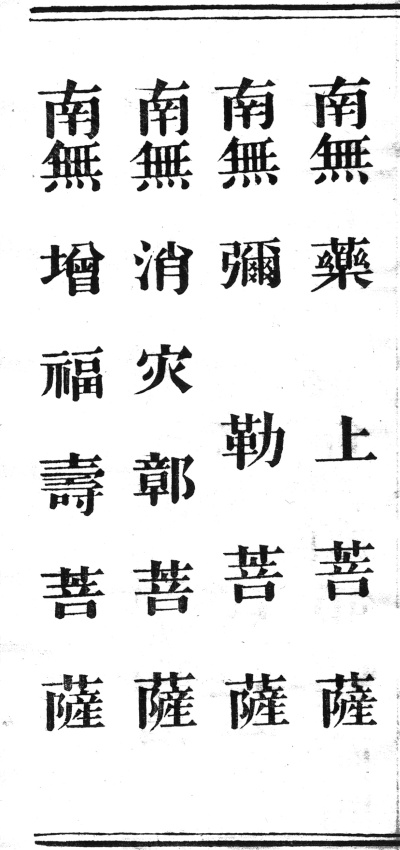 南無藥上菩薩
南無彌勒菩薩
南無消灾鄣菩薩
南無增福壽菩薩